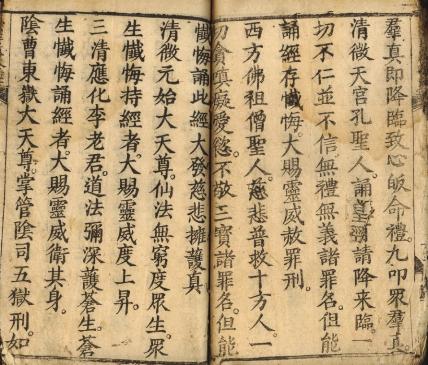 羣真即降臨致心皈命禮。九叩眾羣真。
清微天宮孔聖人。誦皇號請降来臨。一
切不仁並不信。無禮無義諸罪名。但能
誦經存懺悔。大賜靈威赦罪刑。
西方佛祖僧聖人。慈悲普救十方人。一
切貪嗔癡愛慾。不敬三寶諸罪名。但能
懺悔誦此經。大發慈悲擁護真
清微元始大天尊。仙法無窮度眾生。眾
生懺悔持經者。大賜靈威度上昇。
三清應化李老君。道法彌深護蒼生。蒼
生懺悔誦經者。大賜靈威衛其身。
陰曹東嶽大天尊。掌管陰司五獄刑。如